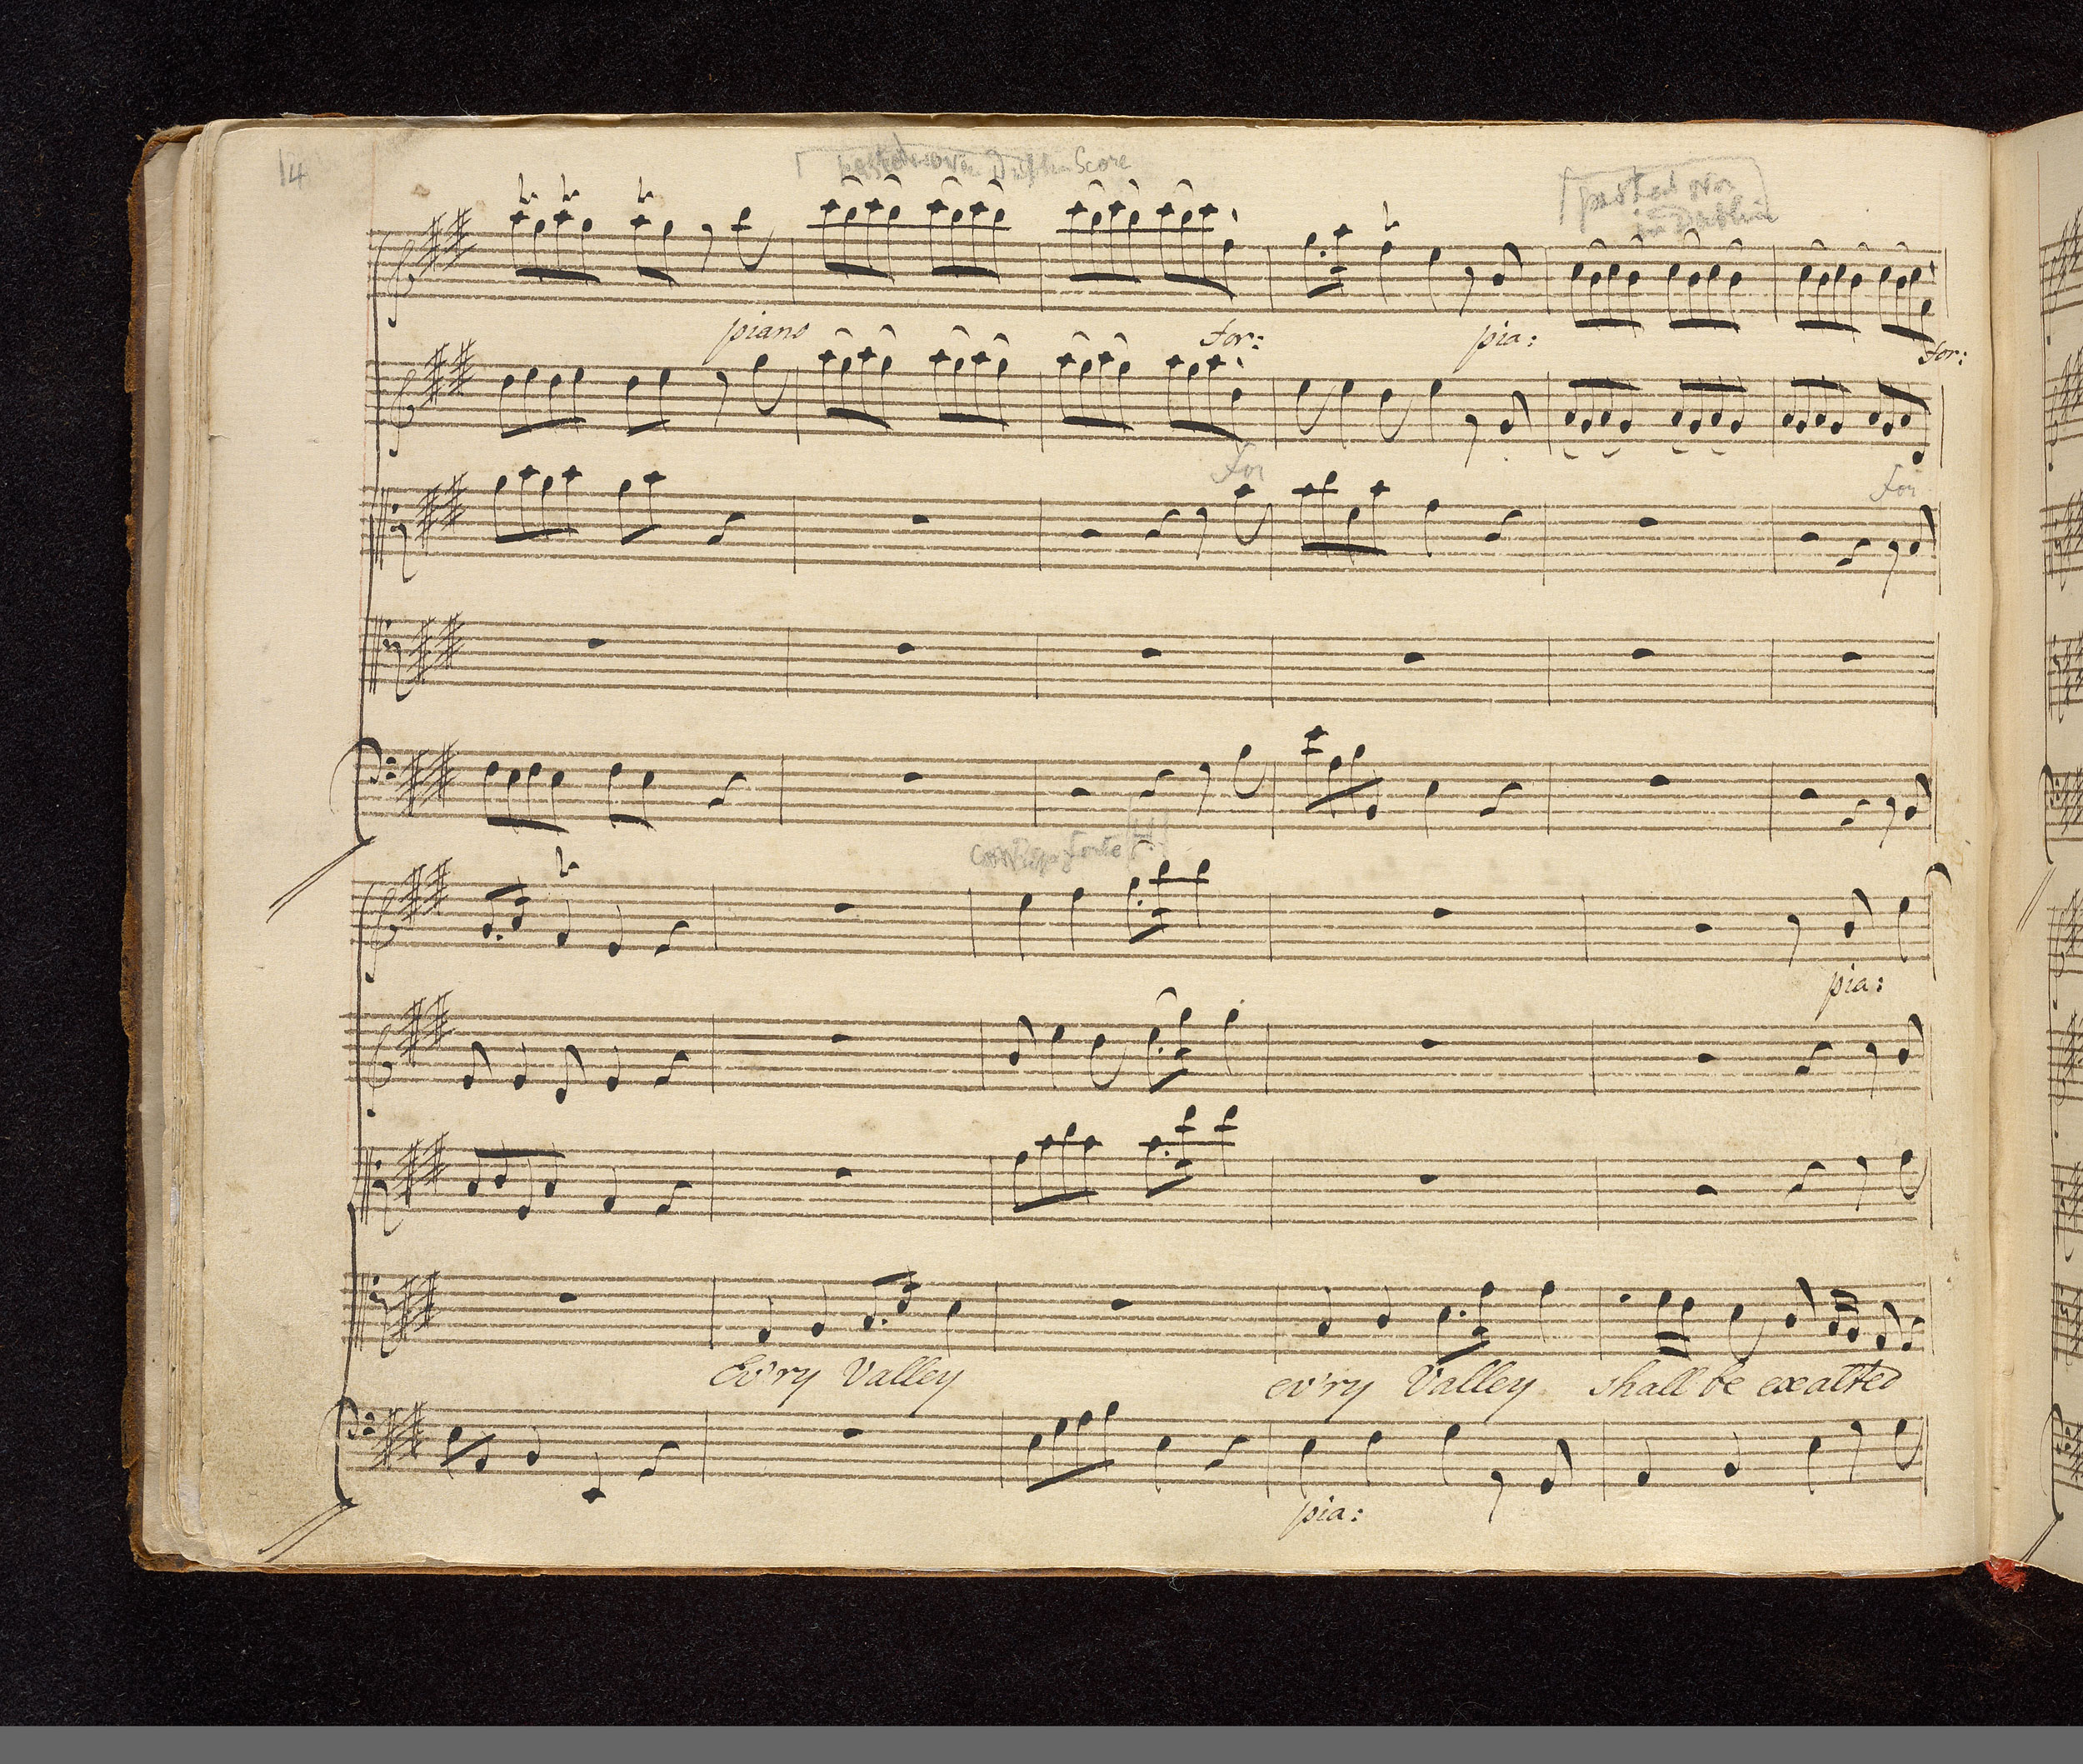 14
pasted over in Dublin Score
pasted over
in Dublin
piano
for:
pia:
for:
For
For
forte
pia:
Ev'ry Valley ev'ry Valley shall be exalted
pia: